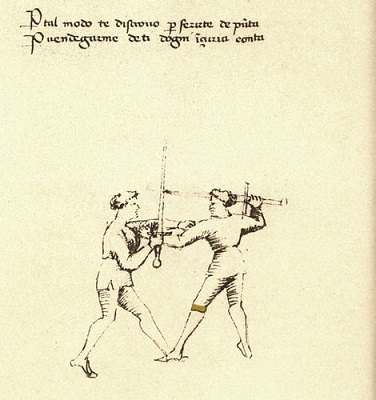 P tal modo te discrouo ꝑ ferirte de pūta
P uendegarme de ti dogni īçuria e onta